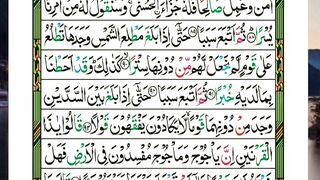 اٰمَنَ وَعَمِلَ صَالِحًا فَلَهٗ جَزَآءَ ۨالْحُسْنٰى وَسَنَقُوْلُ لَهٗ مِنْ اَمْرِنَا
يُسْرًا ثُمَّ اَتْبَعَ سَبَبًا حَتّٰٓى اِذَا بَلَغَ مَطْلِعَ الشَّمْسِ وَجَدَهَا تَطْلُعُ
عَلٰى قَوْمٍ لَّمْ نَجْعَلْ لَّهُمْ مِّنْ دُوْنِهَا سِتْرًا كَذٰلِكَ وَقَدْ اَحَطْنَا
بِمَا لَدَيْهِ خُبْرًا ثُمَّ اَتْبَعَ سَبَبًا حَتّٰٓى اِذَا بَلَغَ بَيْنَ السَّدَّيْنِ
وَجَدَ مِنْ دُوْنِهِمَا قَوْمًا لَّا يَكَادُوْنَ يَفْقَهُوْنَ قَوْلًا قَالُوْا يٰذَا
الْقَرْنَيْنِ اِنَّ يَاْجُوْجَ وَمَاْجُوْجَ مُفْسِدُوْنَ فِى الْاَرْضِ فَهَلْ